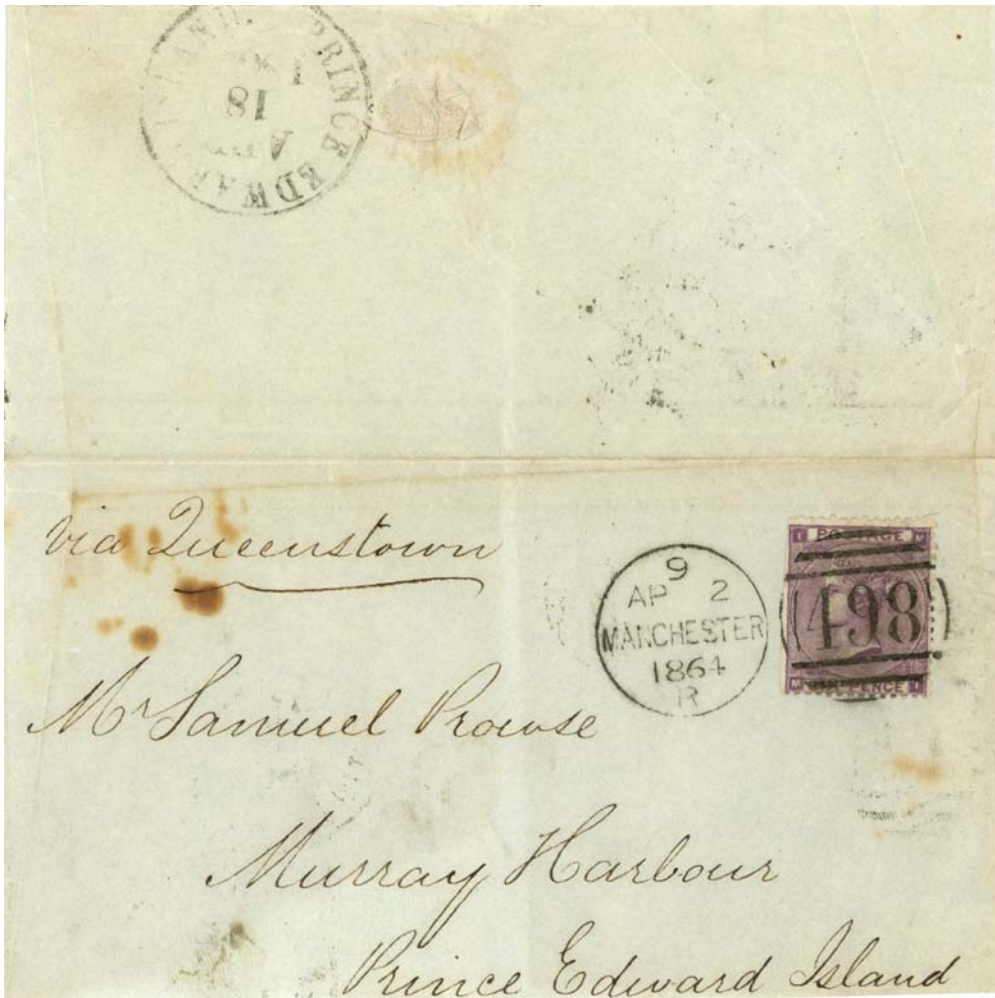 PRINCE EDWARD ISLAND.
18
via Queenstown
I POSTAGE M
9
AP 2
MANCHESTER
1864
R
498
M SIX PENCE I
Mr Samuel Prowse
Murray Harbour
Prince Edward Island